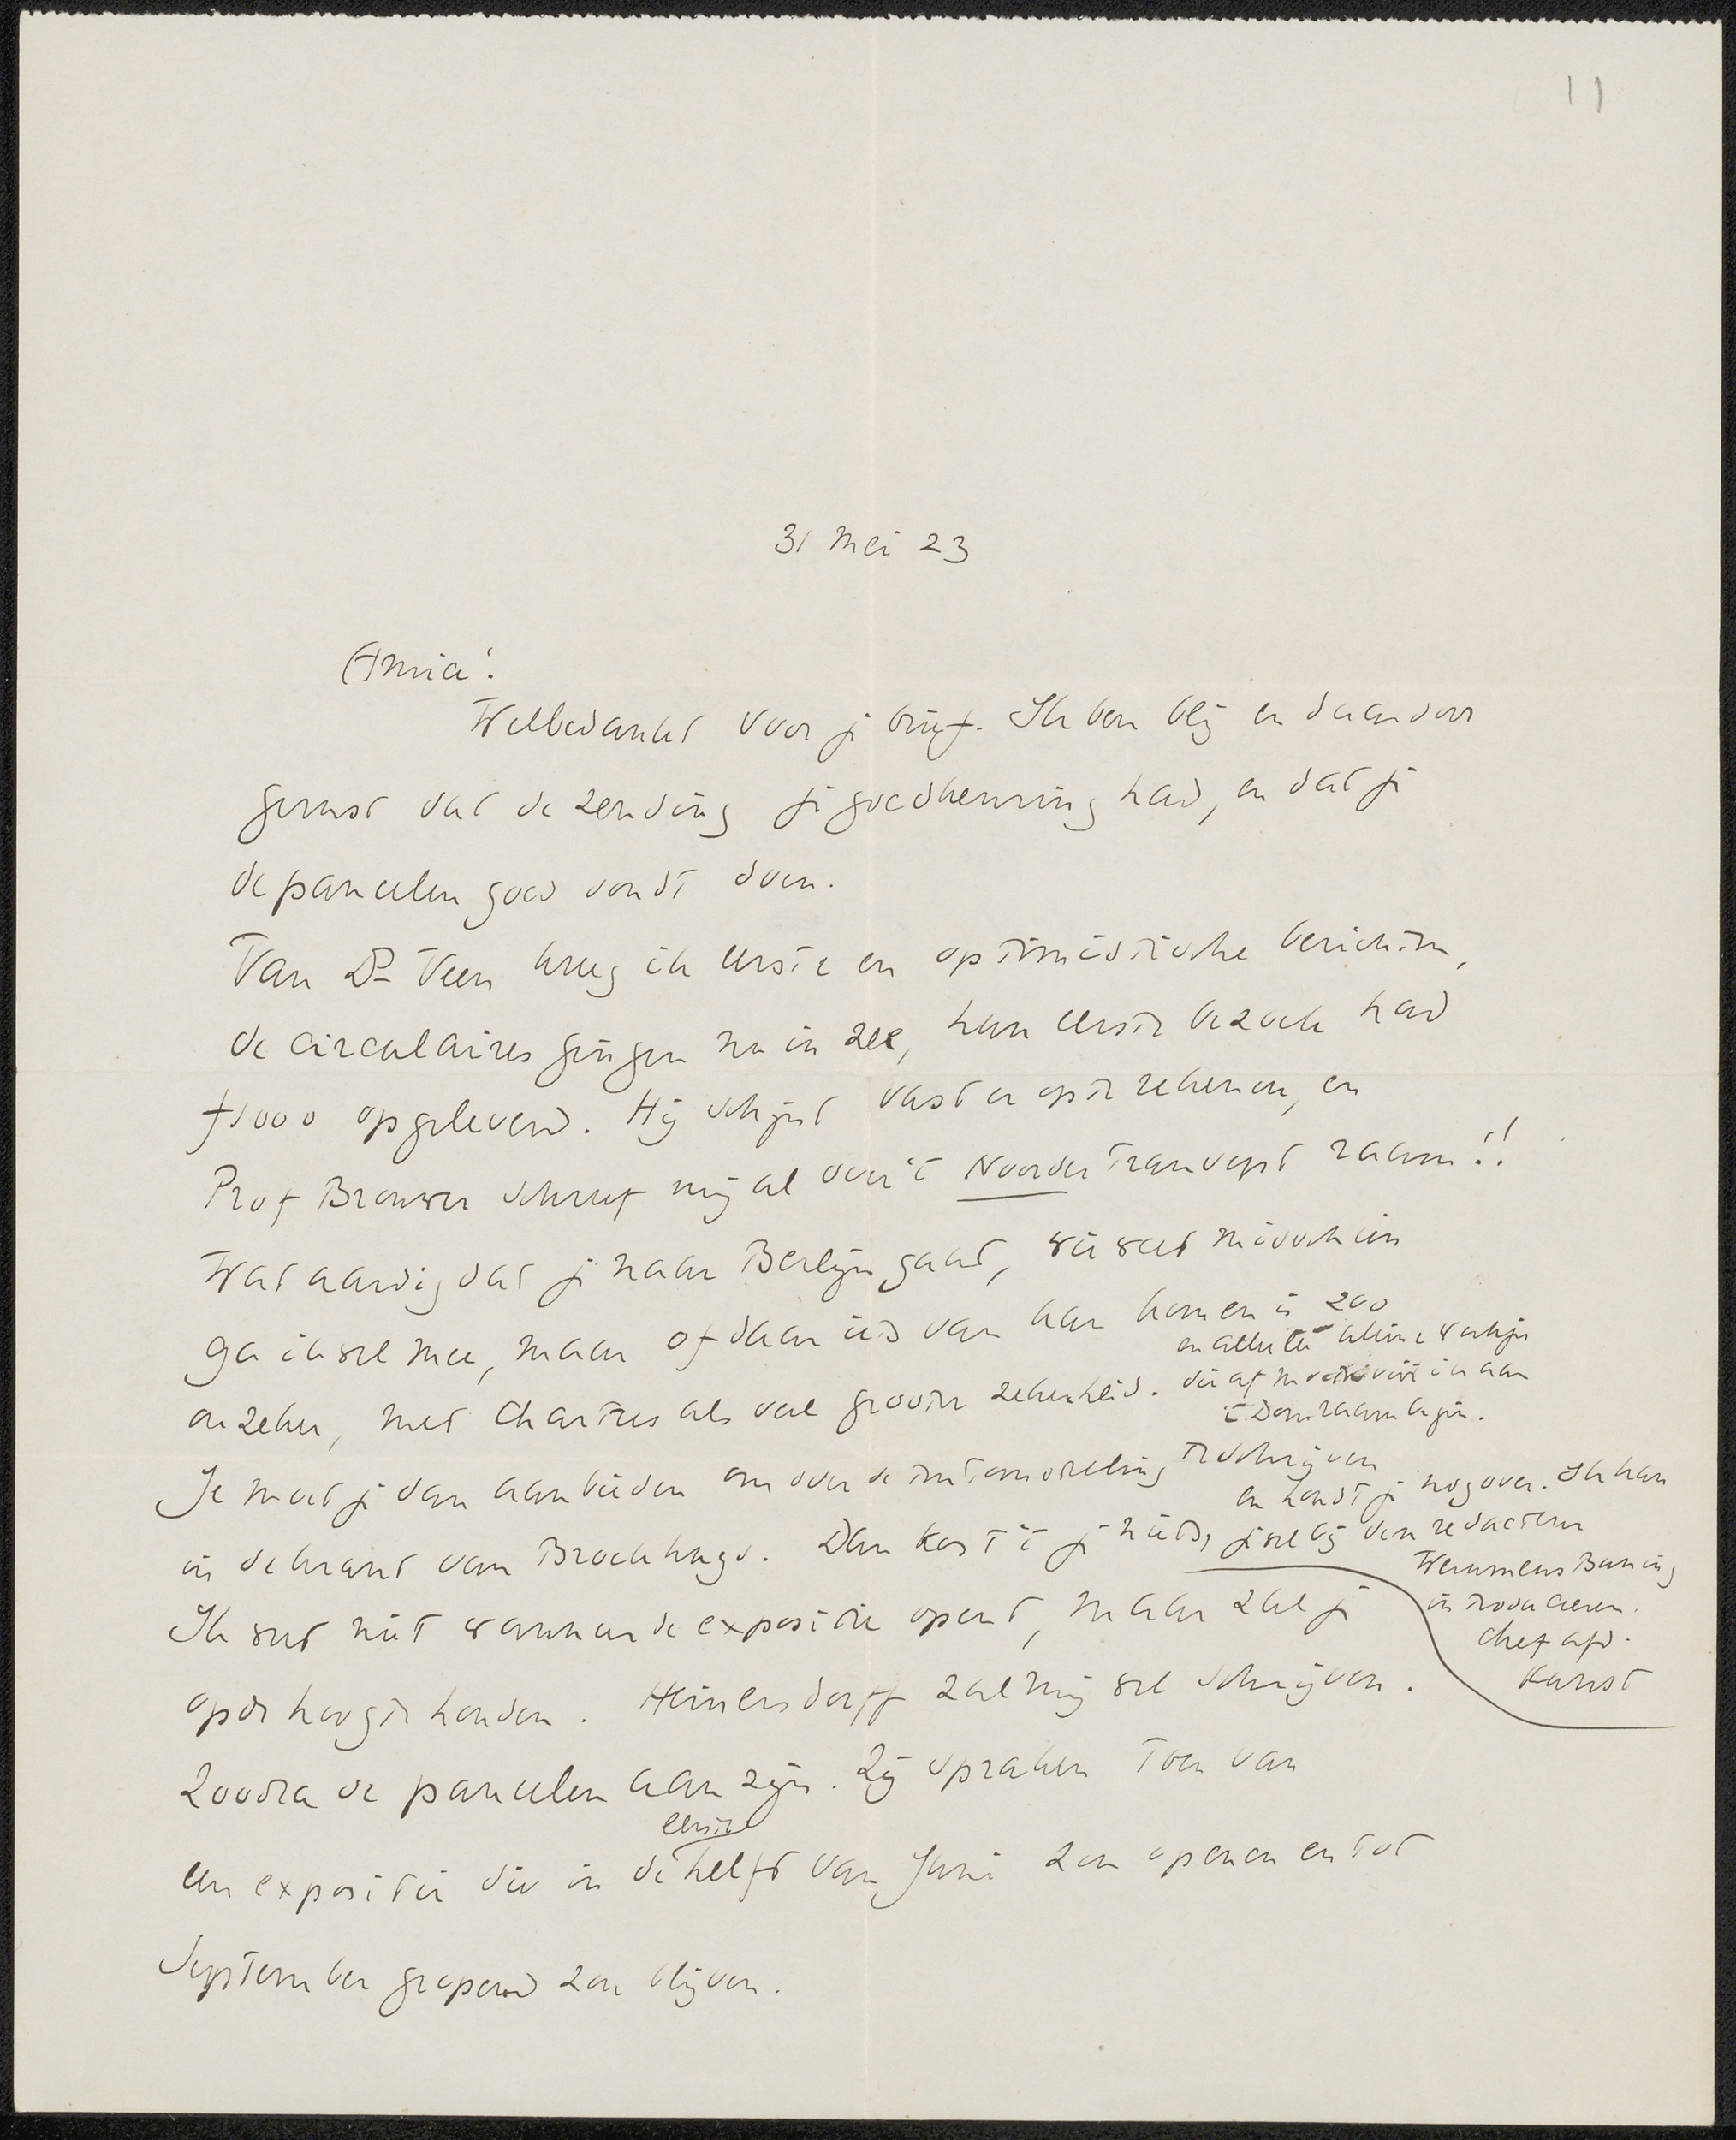 11
31 Mei 23
Amia!
Welbedankt voor je brief. Ik ben blij en daardoor
gerust dat de zending je goedkeuring had, en dat je
de paneelen goed vondt doen.
Van Dr Veen kreeg ik eerste en optimistische berichten,
de circulaires gingen nu in zee, hun eerste bezoek had
f1000 opgeleverd. Hij schijnt vast er op te rekenen, en
Prof Brouwer schreef mij al over 't Noorder Transept raam!!
Wat aardig dat je naar Berlijn gaat, wie weet misschien
ga ik wel mee, maar of daar iets van kan komen is zoo
onzeker, met Chartres als veel grooter zekerheid.
en allerlei kleine werkjes
die af moeten vóór ik aan
't Domraam begin.
Je moet je dan aanbieden om over de tentoonstelling te schrijven
in de krant van Broekhuys. Dan kost 't je niets,
en houdt je nog over. Ik kan
je wel bij den redacteur
Werumeus Buning
introduceeren.
Chef afd.
Kunst
Ik weet niet wanneer de expositie opent, maar zal je
op de hoogte houden. Heinersdorff zal mij wel schrijven.
Zoodra de paneelen aan zijn. Zij spraken toen van
een expositie die in de eerste helft van Juni zou openen en tot
September geopend zou blijven.